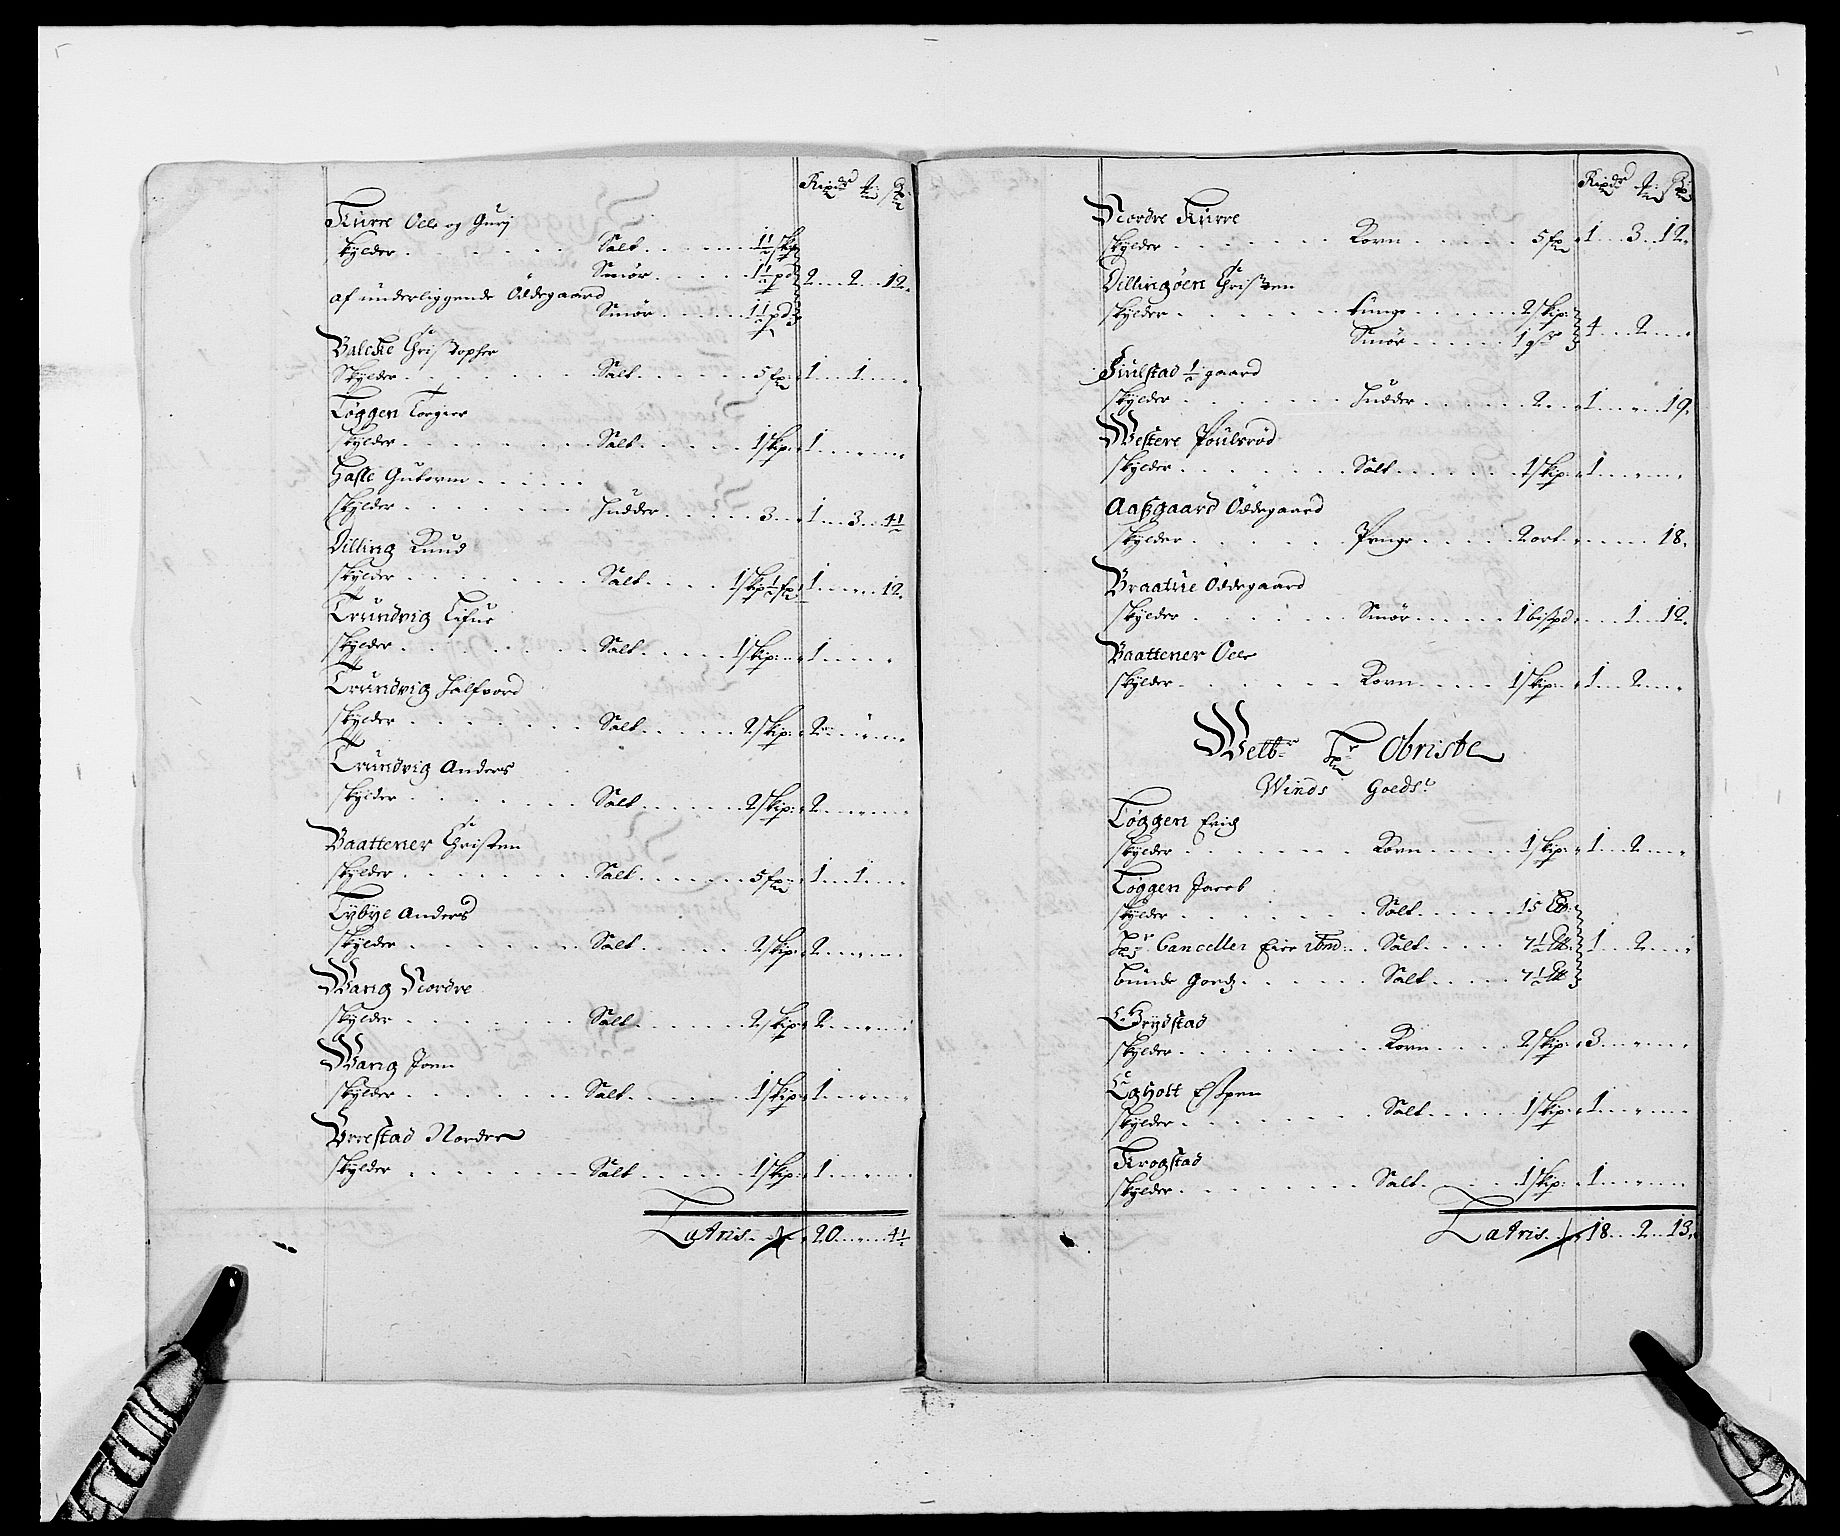 Rixdr
Kurre Olle og Gurj
skylder . . . . . . Salt . . . . . 1½ skip
Smør . . . . . 1½ pd 2 . . 2 . . 12.
af underliggende Oddegaard
Smør . . . . . 1½ pd
Balcke Christopher
Skylder . . . . . . Salt . . . . . 5 fp 1 . . 1 . . .
Tøggen Torgier
skylder . . . . . . Salt . . . . . 1 skip: 1 . . . .
Hasle Gutorm . . . . . .
skylder . . . . . . Hudder . . . . . 3 . . 1 . . 3 . . 4½
Dilling Knud
skylder . . . . . . Salt . . . . 1 skip ½ fp 1 . . . . 12.
Trundvig
skylder . . . . . . Salt . . . . . 1 skip: 1 . . . .
Trundvig Halfvord
skylder . . . . . . Salt . . . . . 2 skip: 2 . . . .
Trundvig Anders
skylder . . . . . . Salt . . . . . 2 skip: 2 . . . .
Baattener Christen
skylder . . . . . . Salt . . . . . 5 fp 1 . . 1 . . .
Tybye Anders
skylder . . . . . . Salt . . . . . 2 skip: 2 . . . .
Wang Nordre
skylder . . . . . . Salt . . . . . 2 skip: 2 . . . .
Wang Joen
skylder . . . . . . Salt . . . . . 1 skip: 1 . . . .
Brrestad Nordre
skylder . . . . . . Salt . . . . . 1 skip: 1 . . . .
Latris . . 20 . . . 4½
Rixdr
Nordre Kurre
skylder . . . . . . Korn . . . . . 5 fp 1 . . 3 . . 12.
Dillingøen Christen
skylder . . . . . . Tunge . . . . . 2 skip:
Smør . . . . . 1 4 . . 2 . . .
Fiulstad ½ gaard
skylder . . . . . . Hudder . . . . . 2 . . 1 . . . 19.
Westere Poulsrød
skylder . . . . . . Salt . . . . . 1 skip: 1 . . . .
Aassgaard Oddegaard
skylder . . . . . . Penge . . . . 2 ort . . . . . 18.
Braatue Oddegaard
skylder . . . . . . Smør . . . . . 1 bispd . . . 1 . . 12.
Baattener Olle
skylder . . . . . . Korn . . . . . 1 skip: 1 . . 2 . . .
Welbr Hr Obriste
Winds Goeds:
Tøggen Erich
skylder . . . . . . Korn . . . . . 1 skip: 1 . . 2 . . .
Tøggen Jacob
skylder . . . . . . Salt . . . . . 15
Hr Cancelli Eier ibm: . . Salt . . . . . 7½ 1 . . 2 . . .
Bunde . . . . . . Salt . . . . . 7½
Grydstad
skylder . . . . . . Korn . . . . . 2 skip: 3 . . . .
Egholt Esspen
skylder . . . . . . Salt . . . . . 1 skip: 1 . . . .
Krogstad
skylder . . . . . . Salt . . . . . 1 skip: 1 . . . .
Latris . . 18 . . 2 . . 13.